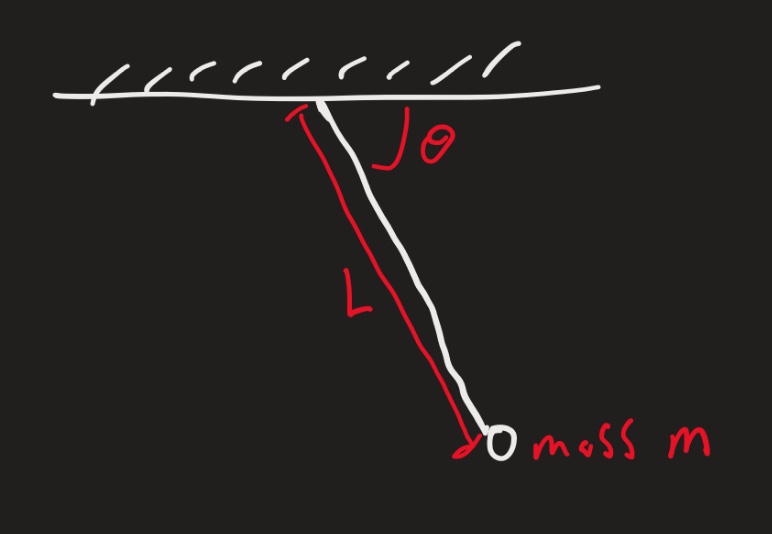 θ
L
mass m